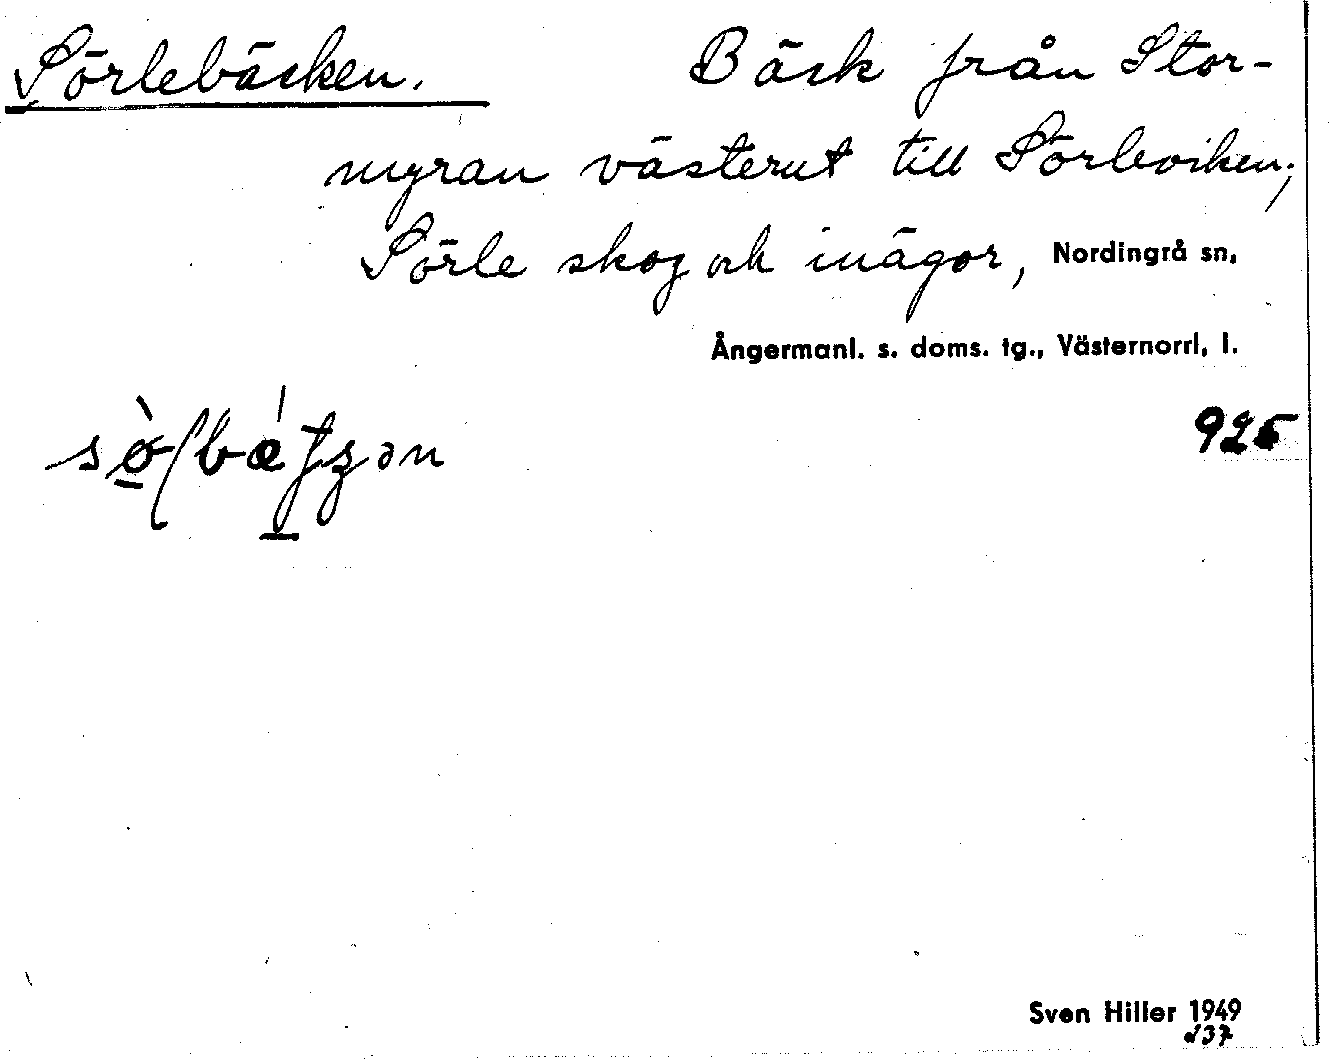 Sörlebäcken. Bäck från Stor-
myran västerut till Sörleviken;
Sörle skog och inägor, Nordingrå sn,
Ångermanl. s. doms. tg., Västernorrl. l.
925
Sven Hiller 1949